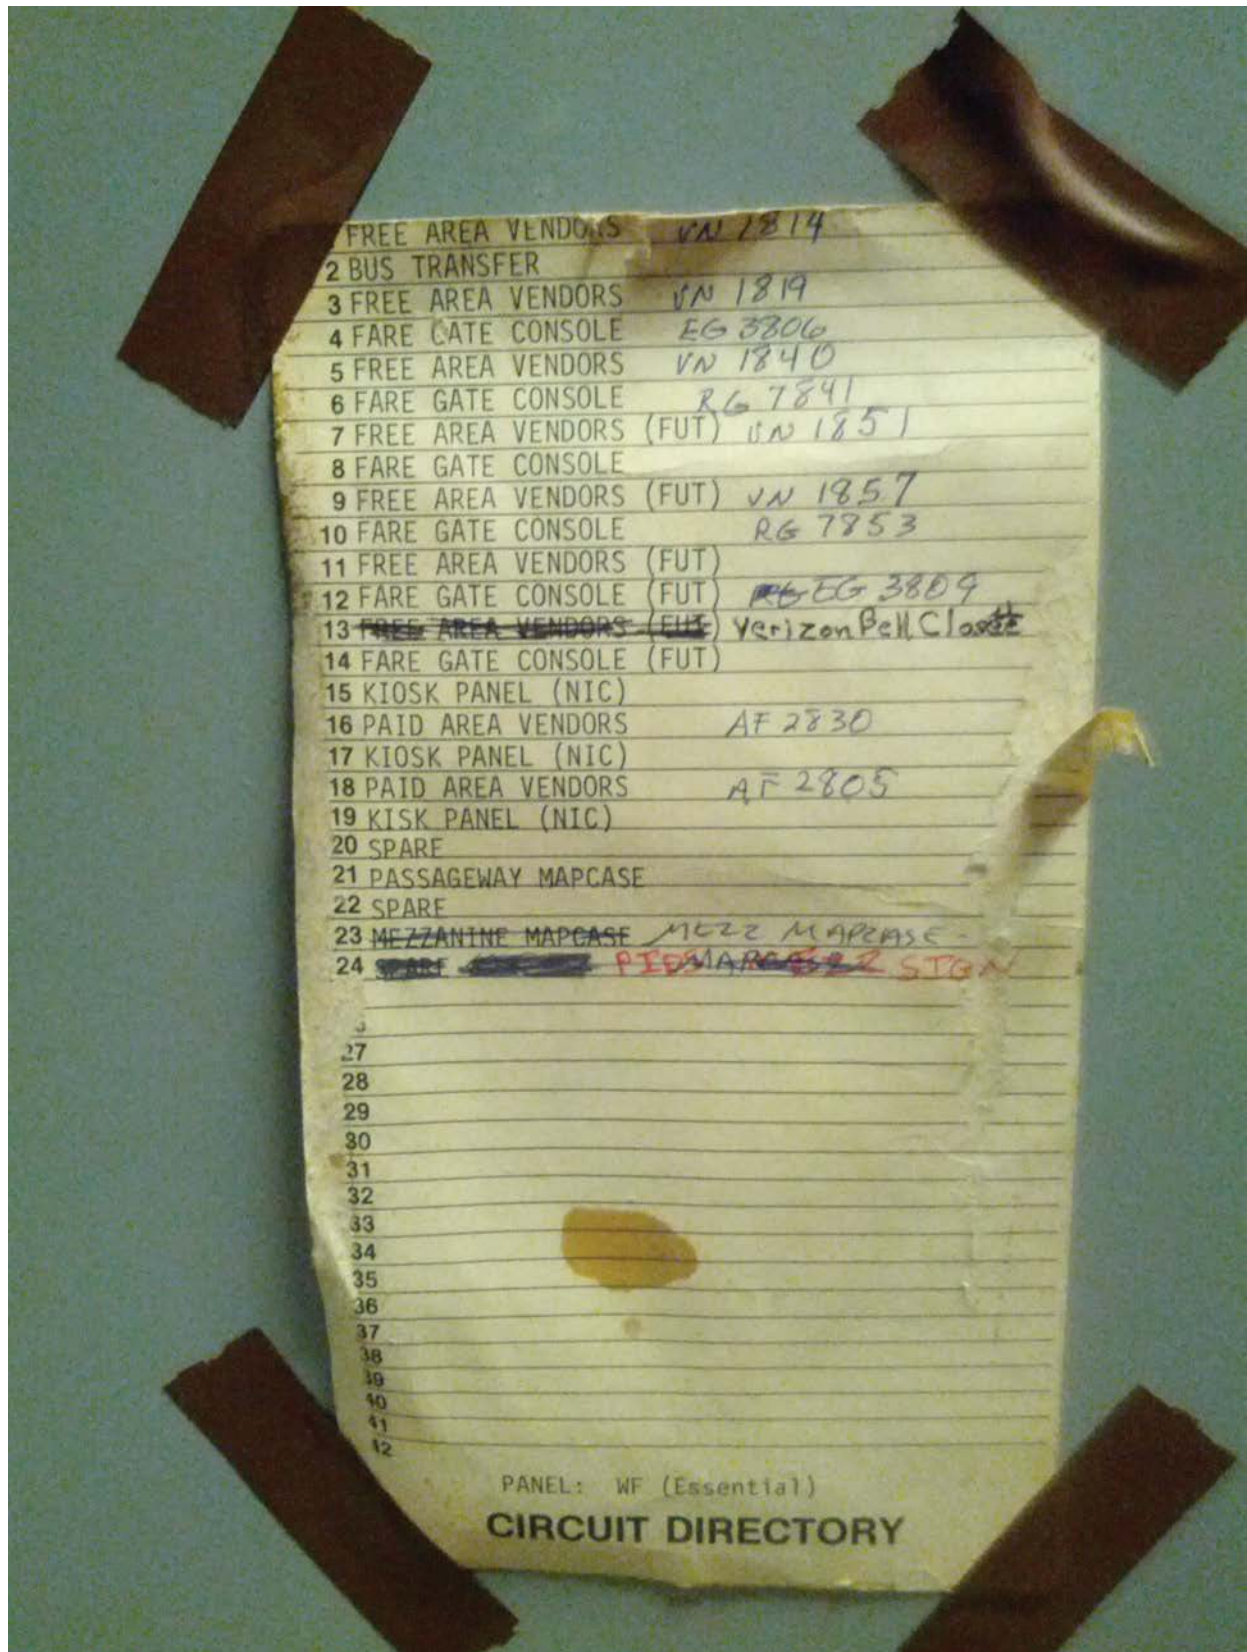 FREE AREA VENDORS VN 1814
2 BUS TRANSFER
3 FREE AREA VENDORS VN 1819
4 FARE GATE CONSOLE EG 3806
5 FREE AREA VENDORS VN 1840
6 FARE GATE CONSOLE RG 7841
7 FREE AREA VENDORS (FUT) VN 1851
8 FARE GATE CONSOLE
9 FREE AREA VENDORS (FUT) VN 1857
10 FARE GATE CONSOLE RG 7853
11 FREE AREA VENDORS (FUT)
12 FARE GATE CONSOLE (FUT) RG EG 3809
13 FREE AREA VENDORS (FUT) Verizon Bell
14 FARE GATE CONSOLE (FUT)
15 KIOSK PANEL (NIC)
16 PAID AREA VENDORS AF 2830
17 KIOSK PANEL (NIC)
18 PAID AREA VENDORS AF 2805
19 KISK PANEL (NIC)
20 SPARE
21 PASSAGEWAY MAPCASE
22 SPARE
23 MEZZANINE MAPCASE MEZZ MAPCASE
24 SPARE SIGN
27
28
29
30
31
32
33
34
35
36
37
38
39
40
41
42
PANEL: WF (Essential)
CIRCUIT DIRECTORY